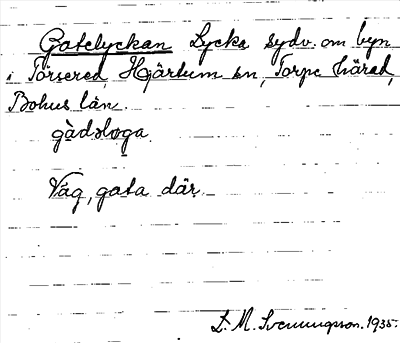 Gatelyckan Lycka sydv. om byn
i Torsered, Hjärtum sn, Torpe härad,
Bohus län.
gàdəlɷga
Väg, gata där.
L. M. Svenungsson. 1935.